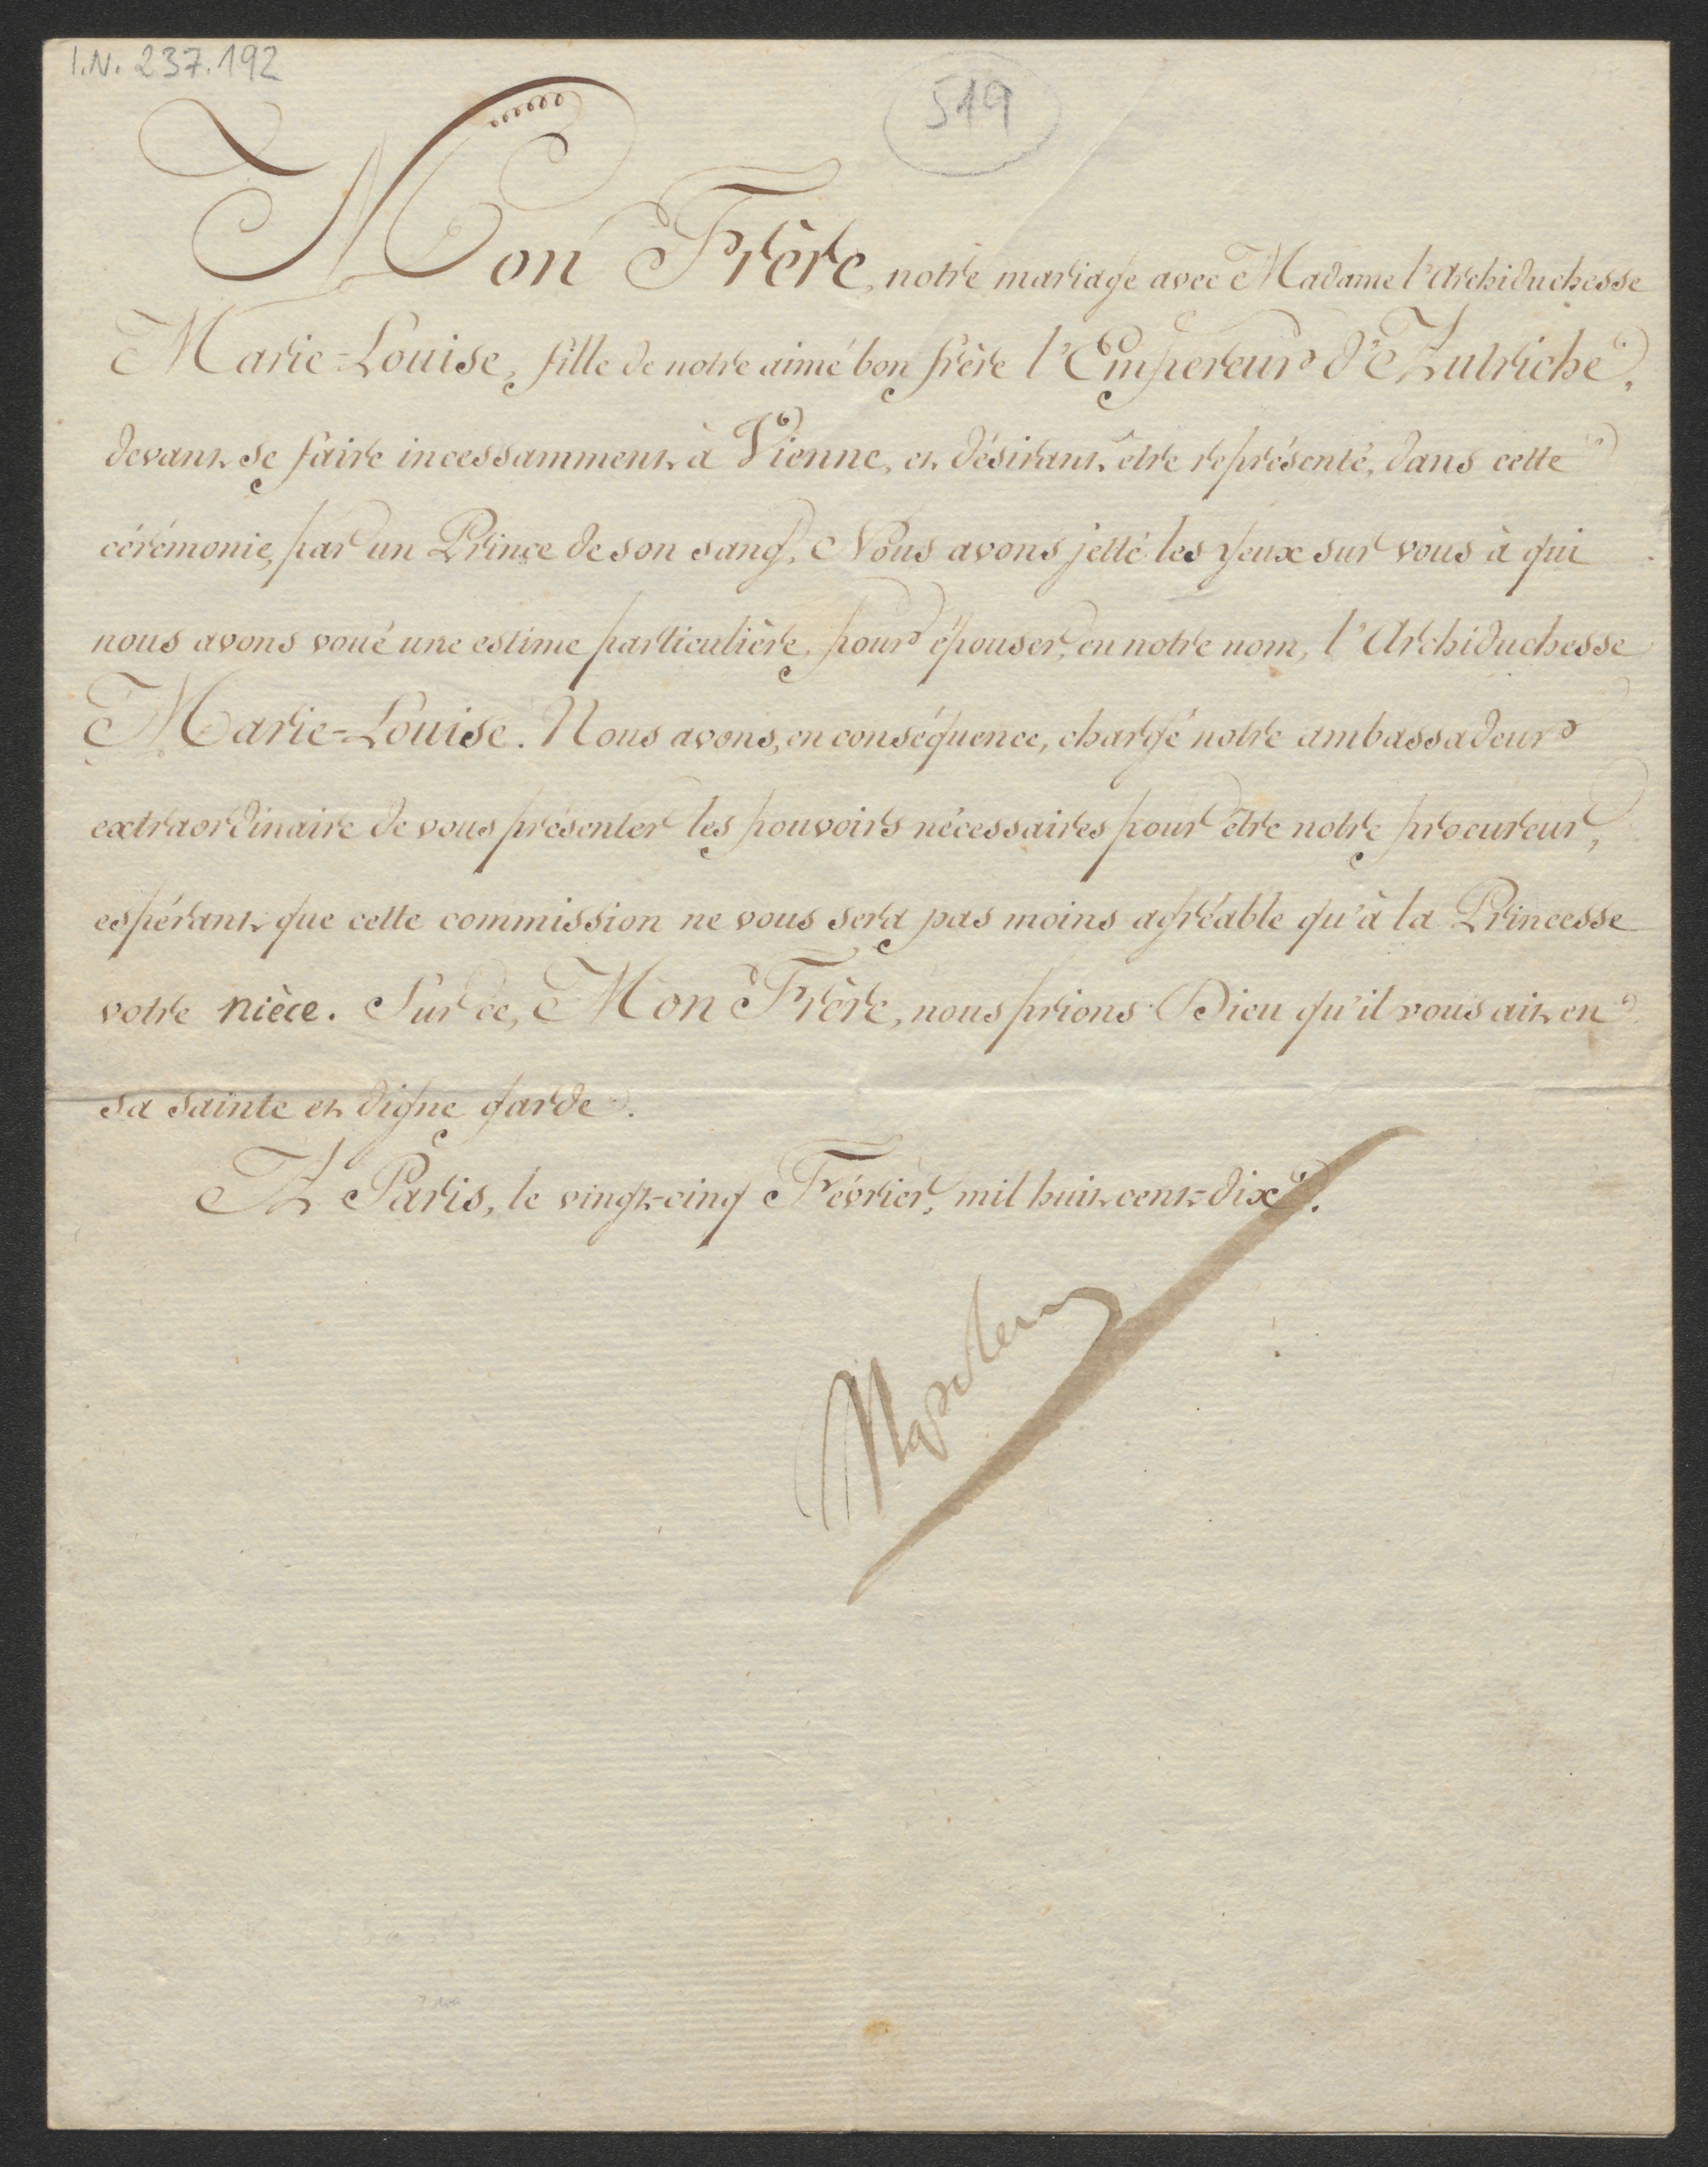 I.N. 237.192
519
Mon Frère, notre mariage avec Madame l'Archiduchesse
Marie=Louise, fille de notre aimé bon frère l'Empereur d'Autriche,
devant se faire incessamment à Vienne, et désirant être représenté, dans cette
cérémonie, par un Prince de son sang, Nous avons jetté les yeux sur vous à qui
nous avons voué une estime particulière, pour épouser, en notre nom, l'Archiduchesse
Marie=Louise. Nous avons, en conséquence, chargé notre ambassadeur
extraordinaire de vous présenter les pouvoirs nécessaires pour être notre procureur,
espérant que cette commission ne vous sera pas moins agréable qu'à la Princesse
votre nièce. Sur ce, Mon Frère, nous prions Dieu qu'il vous ait en
sa sainte et digne garde.
A Paris, le vingt-cinq Février, mil huit cent=dix.
Napoleon